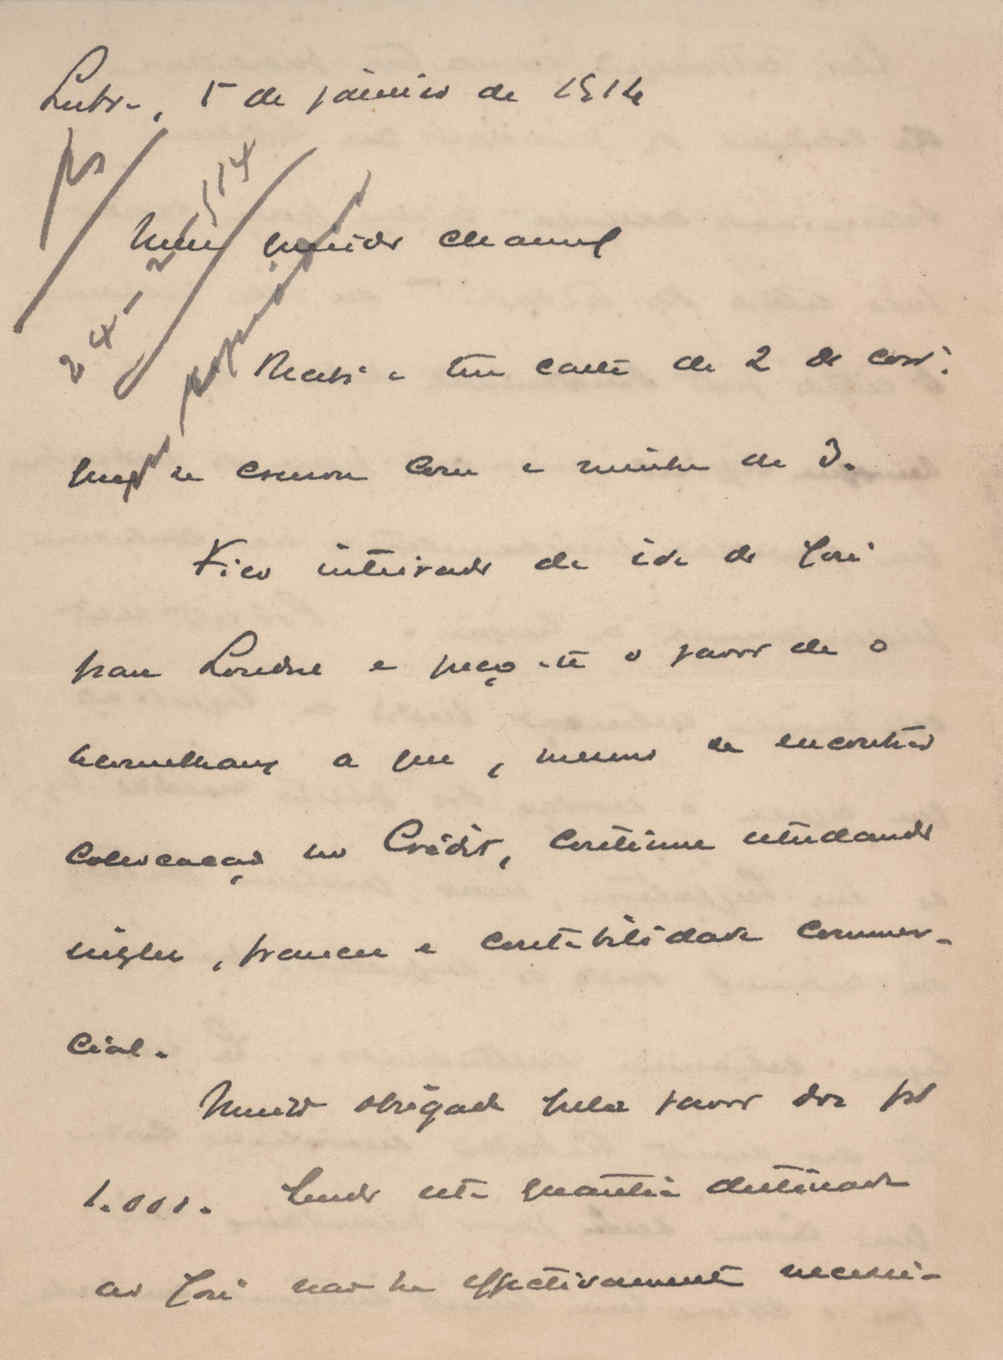 Lisboa, 5 de janeiro de 1914
24-2-914
Meu querido Manoel
Recebi a tua carta de 2 do corr.
que se cruzou com a minha de 3.
Fico inteirado da ida do José
para Londres e peço-te o favor de o
aconselhares a que, mesmo se encontrar
collocação no Crédit, continue estudando
inglez, francez e contabilidade commer-
cial.
Muito obrigado pelo favor dos frs
1.000. Sendo esta quantia destinada
ao José não ha effectivamente necessi-